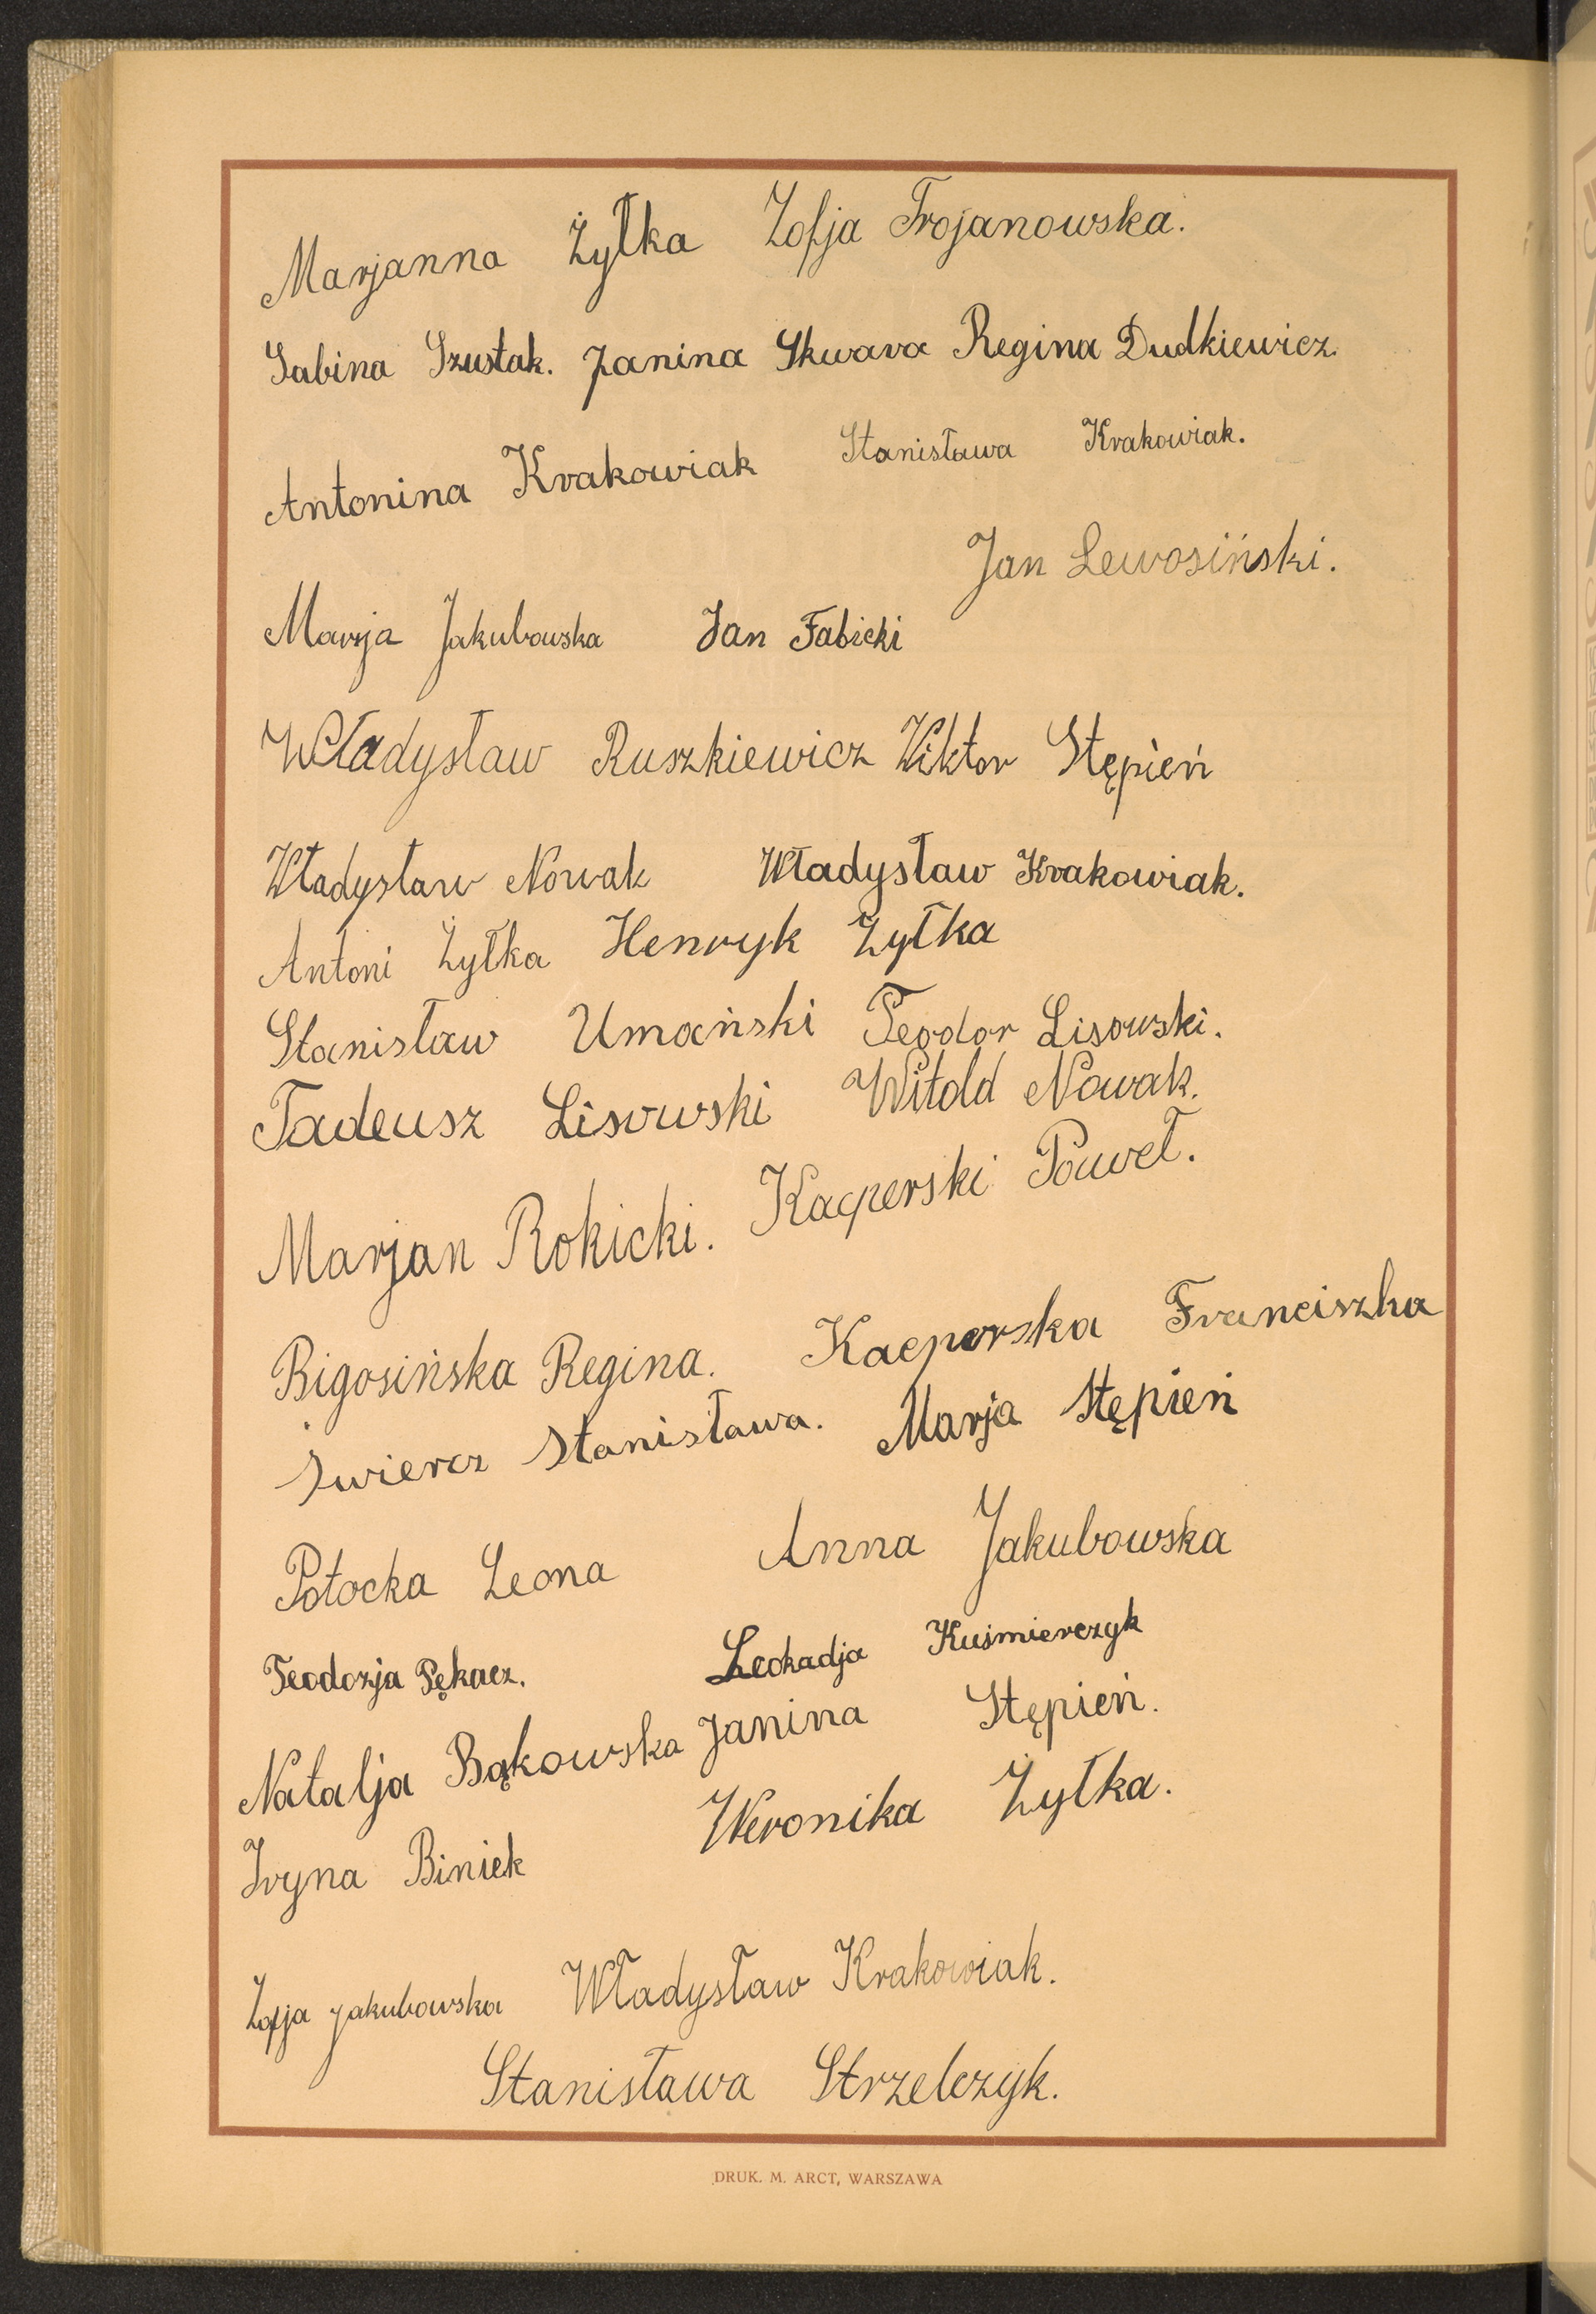 Marjanna Żyłka Zofja Trojanowska.
Sabina Szustak. Janina Skwara Regina Dudkiewicz.
Antonina Krakowiak Stanisława Krakowiak.
Jan Lewosiński.
Marja Jakubowska Jan Fabicki
Władysław Ruszkiewicz Wiktor Stępień
Władysław Nowak Władysław Krakowiak.
Antoni Żyłka Henryk Żyłka
Stanisław Umański Teodor Lisowski.
Tadeusz Lisowski Witold Nowak.
Marjan Rokicki. Kacperski Paweł.
Bigosińska Regina. Kacperska Franciszka
Świercz Stanisława. Marja Stępień
Potocka Leona Anna Jakubowska
Teodozja Pękacz. Leokadja Kuśmierczyk
Natalja Bąkowska Janina Stępień.
Iryna Biniek Weronika Żyłka.
Zofja Jakubowska Władysław Krakowiak.
Stanisława Strzelczyk.
DRUK. M. ARCT, WARSZAWA